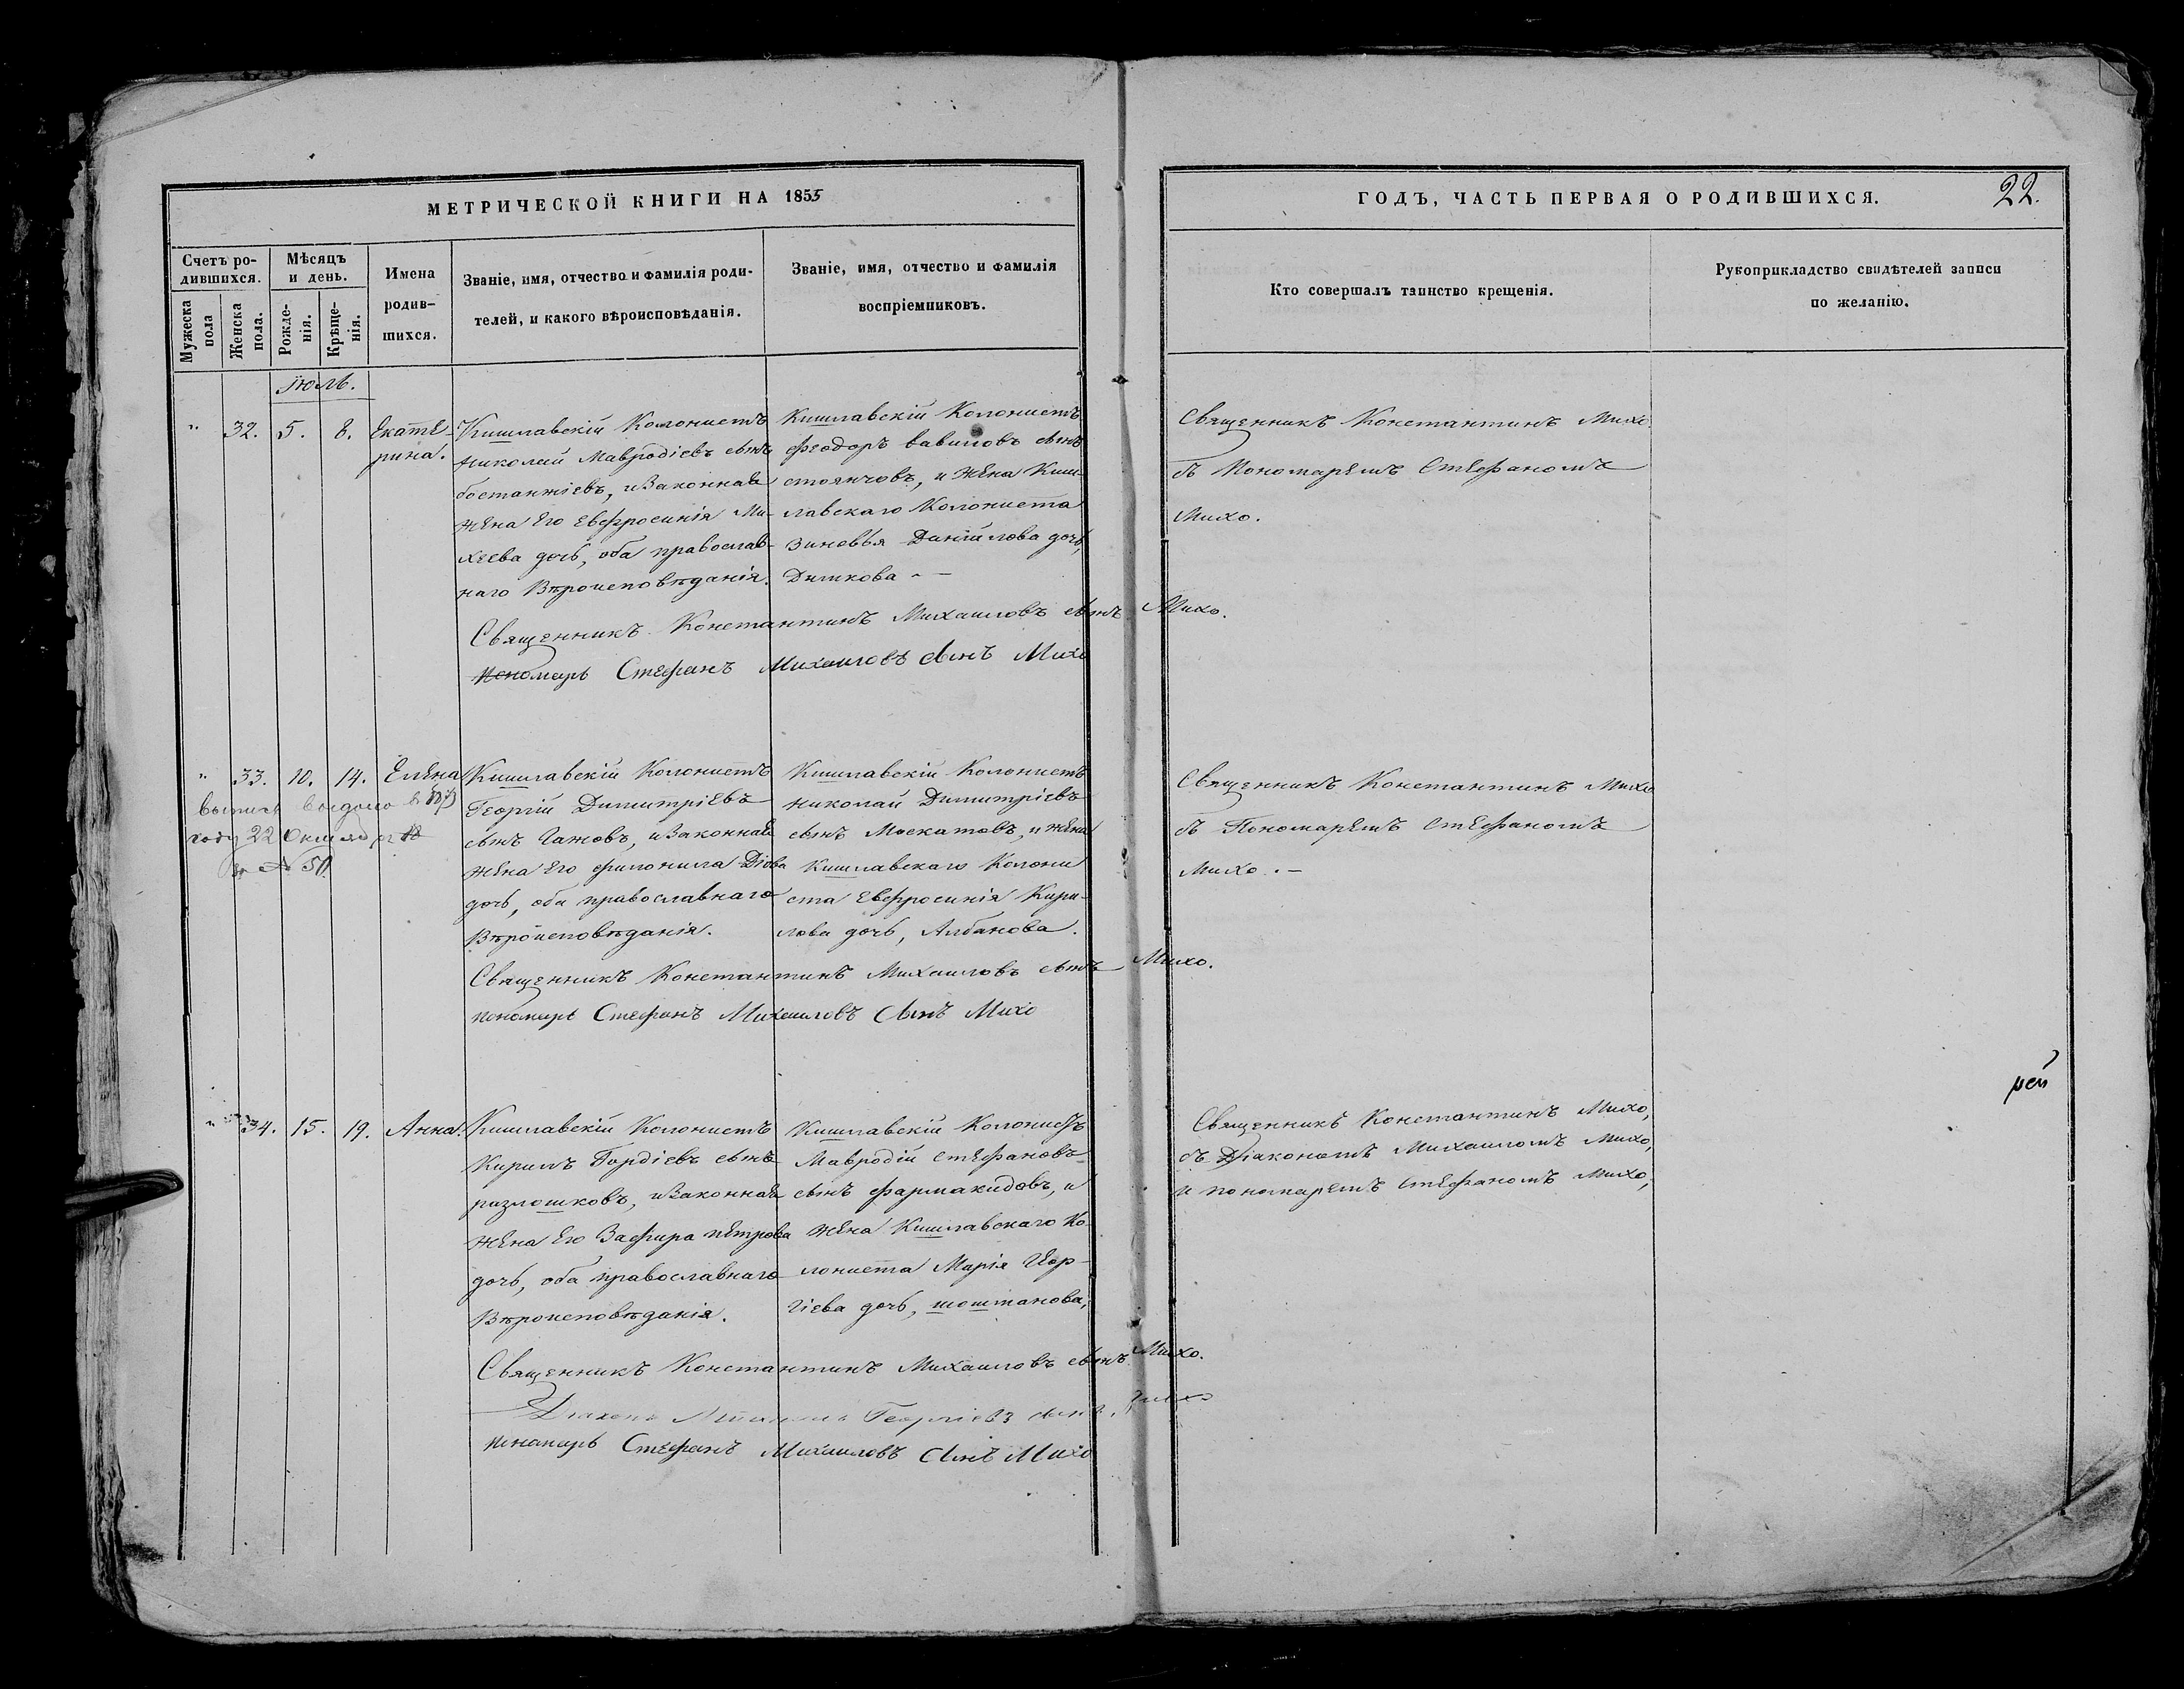 МЕТРИЧЕСКОЙ КНИГИ НА 1855
ГОДЪ, ЧАСТЬ ПЕРВАЯ О РОДИВШИХСЯ.
22.
Счетъ ро-
дившихся.
Мужеска
пола
Женска
пола.
Мѣсяцъ
и день.
Рожде-
нія.
Крѣще-
нія.
Имена
родив-
шихся.
Званіе, имя, отчество и фамилія роди-
телей, и какого вѣроисповѣданія.
Званіе, имя, отчество и фамилія
воспріемниковъ.
Кто совершалъ таинство крещенія.
Рукоприкладство свидѣтелей записи
по желанію.
Іюль.
" 32. 5. 8.
Екате-
рина.
Кишлавскій Колонистъ
Николай Мавродіевъ сынъ
бостанжіевъ, и Законная
жена Его Евфросинія Ми-
хеева дочь, оба православ-
наго Вѣроисповѣданія.
Кишлавскій Колонистъ
Феодоръ вавиловъ сынъ
стоянчовъ, и жена Киш-
лавскаго Колониста
Зиновья Даніилова дочь,
Димкова -
Священникъ Константинъ Михо
съ Пономаремъ Стефаномъ
Михо.
Священникъ Константинъ Михаиловъ сынъ Михо.
Пономарь Стефанъ Михаиловъ сынъ Михо
" 33. 10. 14. Елена
выпись выдана в
году 22 Октября
за № 50
Кишлавскій Колонистъ
Георгій Димитріевъ
сынъ Гажовъ, и Законная
жена Его филонила
дочь, оба православнаго
Вѣроисповѣданія.
Кишлавскій Колонистъ
Николай Димитріевъ
сынъ Москатовъ, и жена
Кишлавскаго Колони
ста Евфросинія Кири-
лова дочь, Албанова.
Священникъ Константинъ Михо
съ Пономаремъ Стефаномъ
Михо. -
Священникъ Константинъ Михаиловъ сынъ Михо.
пономарь Стефанъ Михаиловъ сынъ Михо
" 34. 15. 19. Анна.
Кишлавскій Колонистъ
Кирилъ Гордіевъ сынъ
разлошковъ, и Законная
жена Его Зафира петрова
дочь, оба православнаго
Вѣроисповѣданія.
Кишлавскій Колонистъ
Мавродій Стефановъ
сынъ фармакидовъ, и
жена Кишлавскаго Ко-
лониста Марія Геор-
гіева дочь, шоштанова,
Священникъ Константинъ Михо,
съ Діакономъ Михаиломъ Михо,
и пономаремъ Стефаномъ Михо,
Священникъ Константинъ Михаиловъ сынъ Михо.
Діаконъ Михаилъ Георгіевъ сынъ Михо
пономарь Стефанъ Михаиловъ сынъ Михо
рей